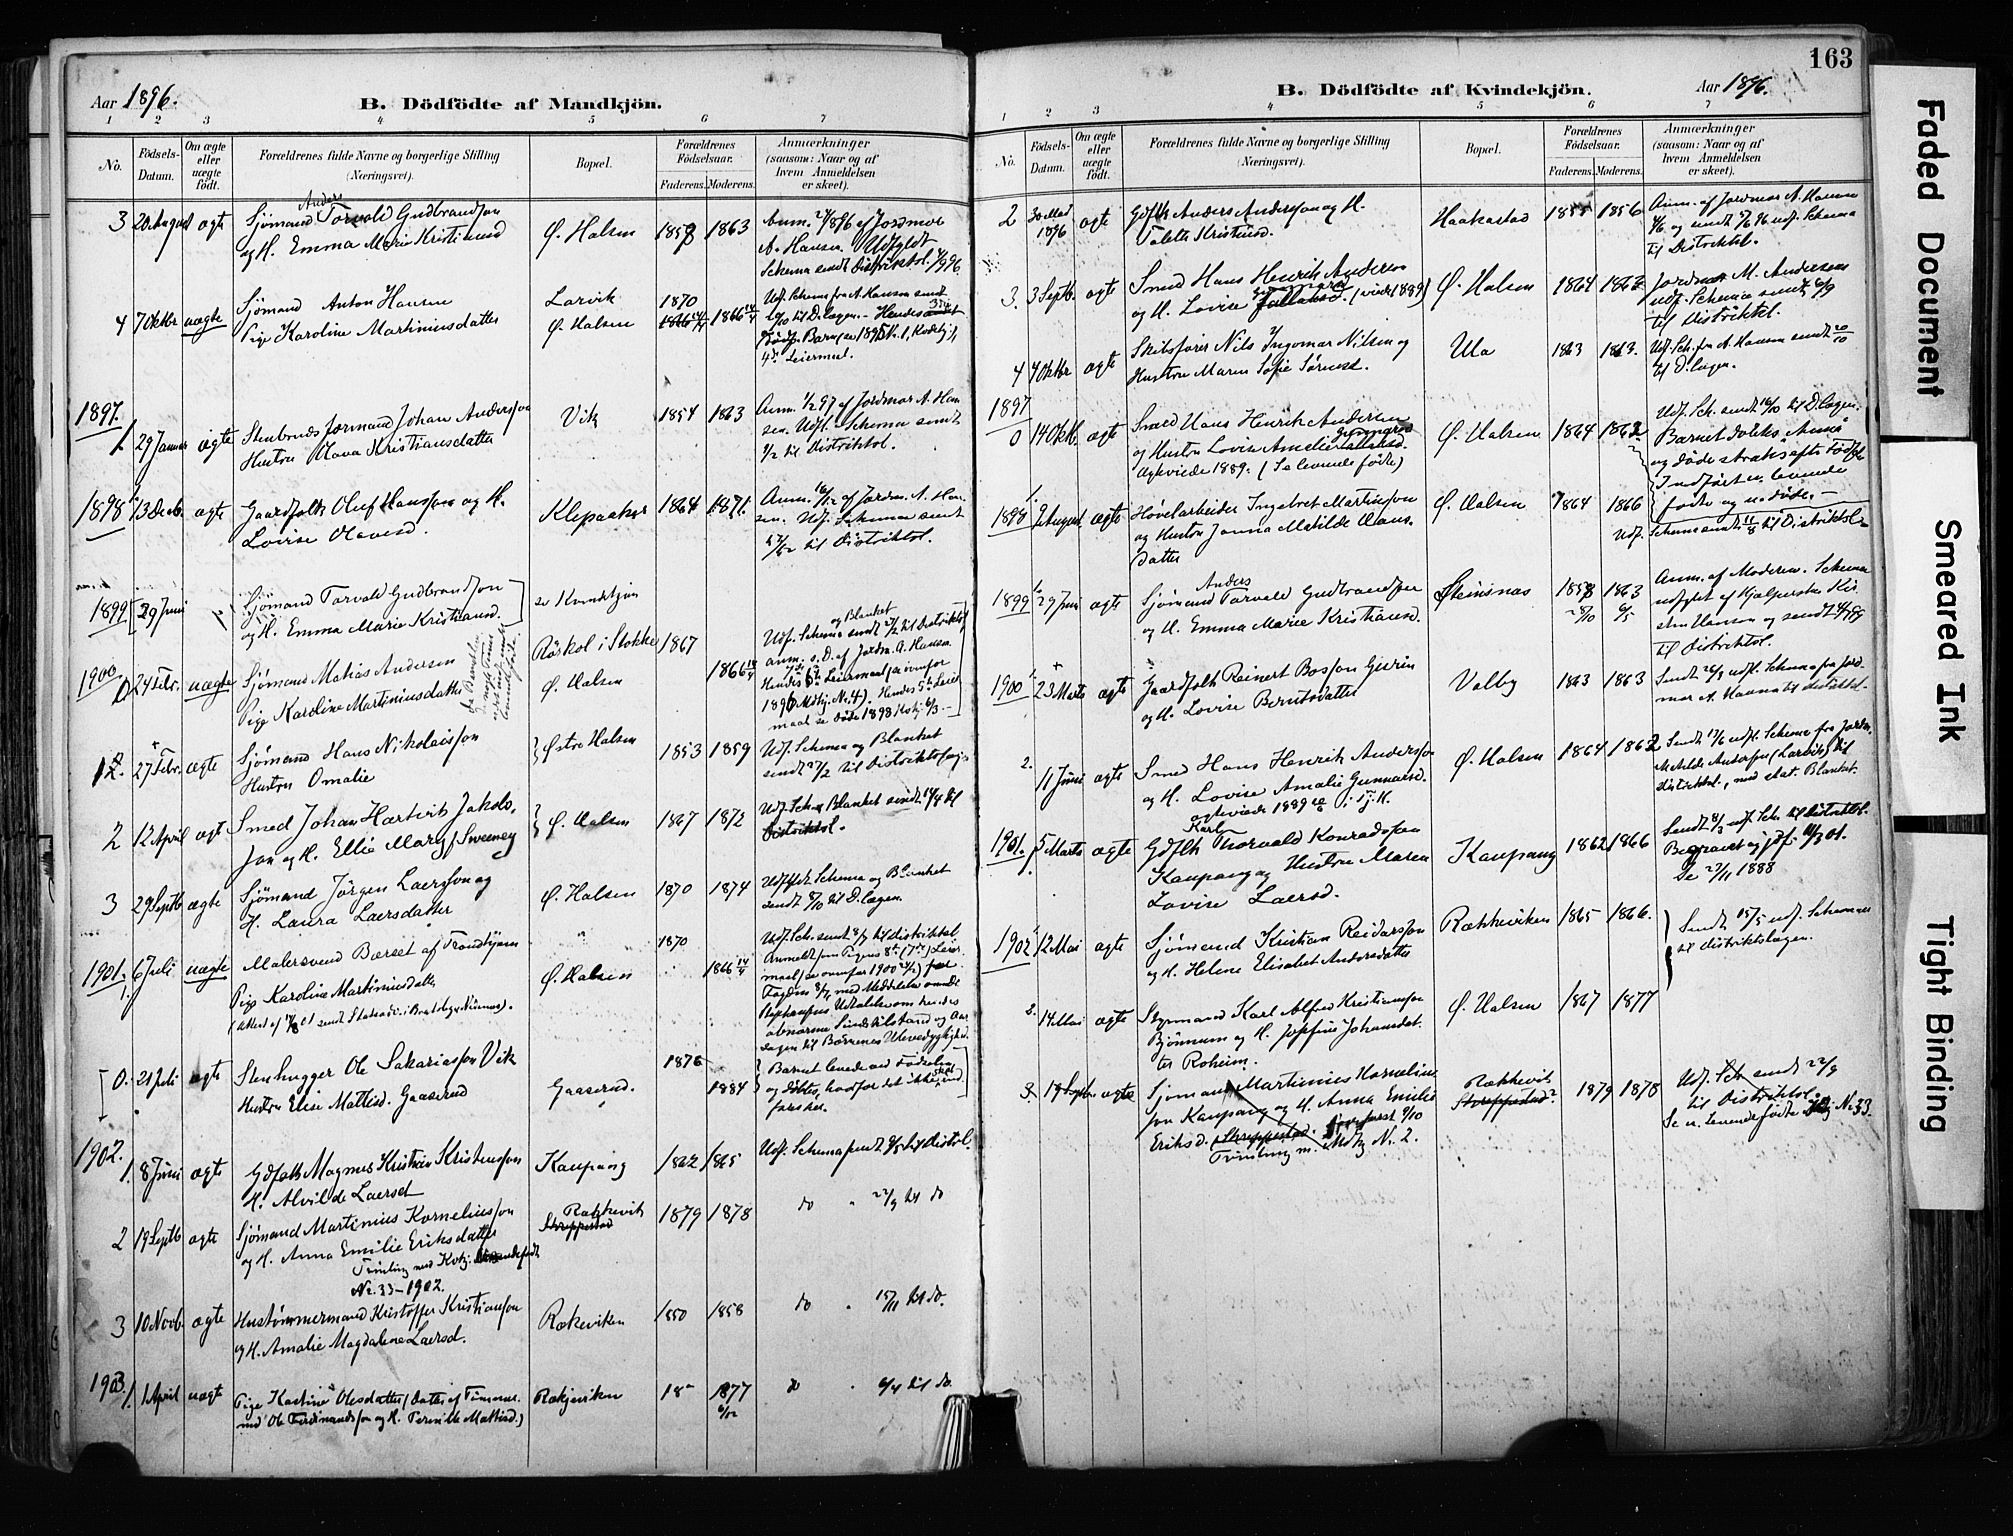 Aar 1896.
B. Dödfödte af Mandkjön.
1 2 3 4 5 6 7
No.
Födsels-
Datum.
Om ægte
eller
uægte
födt.
Forældrenes fulde Navne og borgerlige Stilling
(Næringsvei).
Bopæl.
Forældrenes
Födselsaar.
Faderens. Moderens.
Anmærkninger
(saasom: Naar og af
hvem Anmeldelsen
er skeet).
Anders
3 20 August ægte Sjømand Torvald Gudbrandson
og H. Emma Marie Kristiansd
Ø. Halsen 1858 1863
Anm. 27/8 96 af Jordmor
A. Hansen. Udfyldt
Schema sendt Distriktsl. 1/9 96
4 7 Oktbr uægte Sjømand Anton Hansen
Pige Karoline Martiniusdatter
Larvik 1870
Ø. Halsen 1866 14/4
Udf. Schema fra A. Hansen sendt
20/10 til D. lægen. - Hendes
4de Leiermaal.
1897.
1. 29 Januar ægte Stenbrudsformand Johan Anderson
Hustru Olava Kristiansdatter
Vik 1854 1863
Anm. 1/2 97 af Jordmor A. Han-
sen. Udf. Schema sendt
1/2 til Distriktsl.
1898 1 13 Decb. ægte Gaardfolk Oluf Hansson og H.
Lovise Olavesd.
Klepaaker 1864 1871.
Anm. 16/12 af Jordm. A. Han-
sen. Udf. Schema sendt
til Distriktsl.
1899 29 Juni Sjømand Torvald Gudbrandson
og H. Emma Marie Kristiansd.
se Kvindekjøn
1900 24 Febr. uægte Sjømand Matias Andersen
Pige Karoline Martiniusdatter
Røskol i Stokke 1867
Ø. Halsen 1866 14/4
og Blanket
Udf. Schema sendt 27/2 til Distriktsl.
anm. s. D. af Jordm. A. Hansen.
Hendes 6te Leiermaal (se ovenfor
1896 Mdkj. Nr. 4). Hendes 5te Leier-
maal se døde 1898
27 Febr. ægte Sjømand Hans Nikolaisson
Hustru Omalie
Østre Halsen 1853 1859
Udf. Schema og Blanket
sendt 27/2 til Distriktslæg.
2 12 April ægte Smed Johan Hartvik Jakob-
son og H. Ellie Mary f. Sweeney
Ø. Halsen 1867 1872
Udf. Sch. Blanket sendt 17/4 til
Distriktsl.
3 29 Septb ægte Sjømand Jørgen Laersson og
H. Laura Laersdatter
Ø. Halsen 1870 1874
Udfyldt Schema og Blanket
sendt 8/10 til D. lægen.
1901. 1. 6 Juli uægte Malersvend Bærset af Trondhjem
Pige Karoline Martiniusdatter
1870
Ø. Halsen 1866 14/4
Udf. Sch. sendt 8/7 til distriktsl.
Anmeldt som Pigens 8de (7de) Leier-
maal (se ovenfor 1900 24/2)
0. 21 Juli ægte Stenhugger Ole Sakariasson Vik
Hustru Elise Mattisd. Gaaserud
Gaaserud. 1876
1884
Barnet levede ved Fødselen
og døbtes, hvorfor det ikke
1902. 1. 8 Juni ægte Gdfolk Magnus Kristian Kristensson
H. Alvilde Laersd
Kaupang 1862 1865
Udf. Schema sendt til distrl.
2 19 Septb ægte Sjømand Martinius Korneliusson
og H. Anna Emilie Eriksdatter
Tvilling med Kvkj. levendefødt
Nr. 33 - 1902.
Rækkevik
Skreppestad
1879 1878 do " 22/9 til do
3 10 Novb. ægte Hustømmermand Kristoffer Kristiansson
og H. Amalie Magdalene Laersd.
Rækeviken 1850 1858 do " 15/11 til do.
1903. 1. 1 April uægte Pige Kastine Olesdatter (Datter af Tømmer-
mand Ole Ferdinandsson og H. Pernille Mattisd.)
Rækjeviken 18 - 1877
6/12
do " 6/4 til do.
163
Aar 1896.
B. Dödfödte af Kvindekjön.
1 2 3 4 5 6 7
No.
Födsels-
Datum.
Om ægte
eller
uægte
födt.
Forældrenes fulde Navne og borgerlige Stilling
(Næringsvei).
Bopæl.
Forældrenes
Födselsaar.
Faderens. Moderens.
Anmærkninger
(saasom: Naar og af
hvem Anmeldelsen
er skeet).
2 30 Mai
1896
ægte Gdflk Anders Andersson og H.
Talette Kristiansd.
Haakestad 1855 1856
Anm. af Jordmor A. Hansen
til Distriktsl.
3. 3 Septb. ægte Smed Hans Henrik Anderson
og H. Lovise Gunnarsd Jallaksd. (viede 1889)
Ø. Halsen 1864 1862
Jordmor M. Andersen
udf. Schema sendt 6/9
til Distriktsl.
4 4 Oktbr ægte Skibsfører Nils Ingomar Nilsen og
Hustru Maren Sofie Sørensd.
Ula 1863 1863.
Udf. Sch. fra A. Hansen sendt 20/10
til D. lægen.
1897
0 14 Oktb. ægte Smed Hans Henrik Andersen
og Hustru Lovise Amelie Gunnarsd Jallaksd.
Ægteviede 1889. (Se levende fødte)
Ø. Halsen 1864 1862
Udf. Sch. sendt 16/10 til D. lægen.
Barnet døbtes "Anna"
og døde straks efter Fødslen
Indført u. levende
fødte og u. døde. -
1898 1. 9 August ægte Høvelarbeider Ingebret Martinsson
og Hustru Janna Matilde Claus-
datter
Ø. Halsen 1864 1866
Udf. Schema sendt 11/8 til Distriktsl.
Anders
1899 1. 29 Juni ægte Sjømand Torvald Gudbrandsson
og H. Emma Marie Kristiansd.
Steinsnæs 1858 1863
28/10 6/5
Anm. af Moderen. Schema
udfyldt af Hjælperske Kir-
sten Hansen og sendt 4/7 99
til Distriktsl.
1900 1. 23 Marts ægte Gaardfolk Reinert Bosson Gurin
og H. Lovise Berntsdatter
Valby 1863 1863
Sendt 26/3 udf. Schema fra Jord-
mor A. Hansen til distriktsl.
2. 11 Juni ægte Smed Hans Henrik Andersson
og H. Lovise Amalie Gunnarsd.
Ø. Halsen 1864 1862
Sendt 13/6 udf. Schema fra Jordm.
Matilde Anderson (Larvik) til
distriktsl., med stat. Blanket.
Karl
1901. 1. 5 Marts ægte Gdflk Thorvald Konradsson
Kaupang og Hustru Maren
Lovise Laersd.
Kaupang 1862 1866
Sendt 8/3 udf. Sch. til distriktsl.
Se 27/11 1888
1902 1. 12 Mai ægte Sjømand Kristian Reidarsson
og H. Helene Elisabet Andersdatter
Rækkeviken 1865 1866.
Sendt 15/5 udf. Schemaer
til distriktslægen.
2. 14 Mai ægte Styrmand Karl Alfred Kristiansson
Bjønnum og H. Josefine Johannesdat-
ter Roheim.
Ø. Halsen 1867 1877
3. 19 Septbr ægte Sjømand Martinius Kornelius-
son Kaupang og H. Anna Emilie
Eriksd. (Skreppestad.
Tvilling m. Mdkj Nr. 2.
Rækkevik
Skreppestad?
1879 1878
Udf. Sch. sendt 22/9
til Distriktsl.
Se u. levendefødte Kvkj Nr. 33.
Faded Document
Smeared Ink
Tight Binding